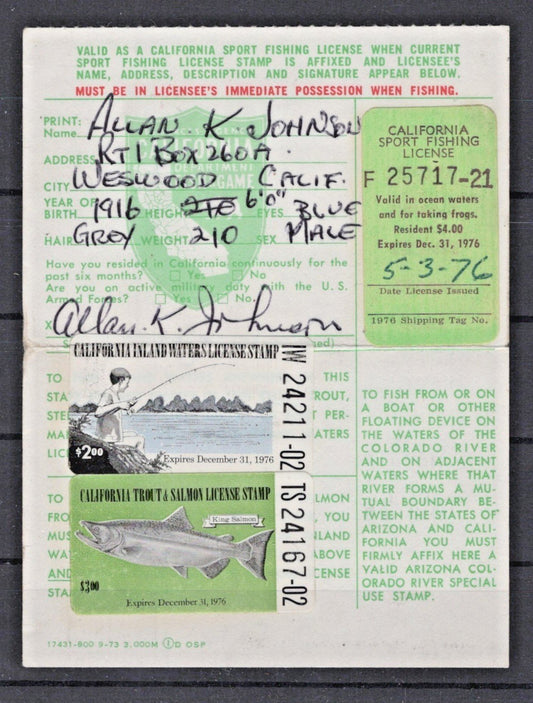 VALID AS A CALIFORNIA SPORT FISHING LICENSE WHEN CURRENT
SPORT FISHING LICENSE STAMP IS AFFIXED AND LICENSEE'S
NAME, ADDRESS, DESCRIPTION AND SIGNATURE APPEAR BELOW.
MUST BE IN LICENSEE'S IMMEDIATE POSSESSION WHEN FISHING.
PRINT:
Name ALLAN K JOHNSON
ADDRESS RT 1 BOX 260A.
CITY WESWOOD CALIF.
YEAR OF
BIRTH 1916 HEIGHT 210 6'0" EYES BLUE
HAIR GREY 210 SEX MALE
Have you resided in California continuously for the
past six months? Yes No
Are you on active military duty with the U.S.
Armed Forces? Yes No
X Allan K. Johnson
CALIFORNIA
SPORT FISHING
LICENSE
F 25717-21
Valid in ocean waters
and for taking frogs.
Resident $4.00
Expires Dec. 31, 1976
5-3-76
Date License Issued
1976 Shipping Tag No.
CALIFORNIA INLAND WATERS LICENSE STAMP
$2.00
Expires December 31, 1976
IW 24211-02
CALIFORNIA TROUT & SALMON LICENSE STAMP
King Salmon
$3.00
Expires December 31, 1976
TS 24167-02
TO THIS
STA ROUT,
STE PER-
MIT ATERS
LIC
TO LMON
FRO YOU
MUS NLAND
WAT ABOVE
AND ENSE
STA
TO FISH FROM OR ON
A BOAT OR OTHER
FLOATING DEVICE ON
THE WATERS OF THE
COLORADO RIVER
AND ON ADJACENT
WATERS WHERE THAT
RIVER FORMS A MU-
TUAL BOUNDARY BE-
TWEEN THE STATES OF
ARIZONA AND CALI-
FORNIA YOU MUST
FIRMLY AFFIX HERE A
VALID ARIZONA COL-
ORADO RIVER SPECIAL
USE STAMP.
17431-800 9-73 2,000M D OSP